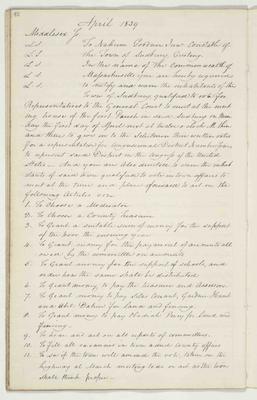 April 1839
Middlesex Ss
L.S. To Nahum Goodnow Junr Constable of
L.S. the Town of Sudbury, Greeting.
L.S. In the name of the Commonwealth of
L.S. Massachusetts you are hereby required
L.S. to notify and warn the inhabitants of the
town of Sudbury qualified to vote for
Representatives to the General Court to meet at the meet
ing house of the first Parish in said Sudbury on Mon
day the first day of April next at twelve o'clock M. then
and there to give in to the Selectmen their written votes
for a representative for Congressional District Number four
to represent said District in the congress of the United
States — And you are also directed to warn the inhabi
tants of said town qualified to vote in town affairs to
meet at the time and place aforesaid to act on the
following Articles viz.
1. To Choose a Moderator
2. To Choose a County Treasurer
3. To Grant a suitable sum of money for the support
of the poor the ensuing year
4. To Grant money for the payment of accounts all
owed by the committee on accounts
5. To Grant money for the support of schools, and
order how the same shall be distributed
6. To Grant money to pay the treasurer and assessors.
7. To Grant money to pay Silas Conant, Gardner Hunt
and Abel Dakin for Land and fencing.
8. To Grant money to pay Obadiah Perry for Land and
fencing.
9. To hear and act on all reports of committees.
10. To fill all vacancies in town and county offices
11. To see if the town will amend the vote taken on the
highway at March meeting last or act as the town
shall think proper —